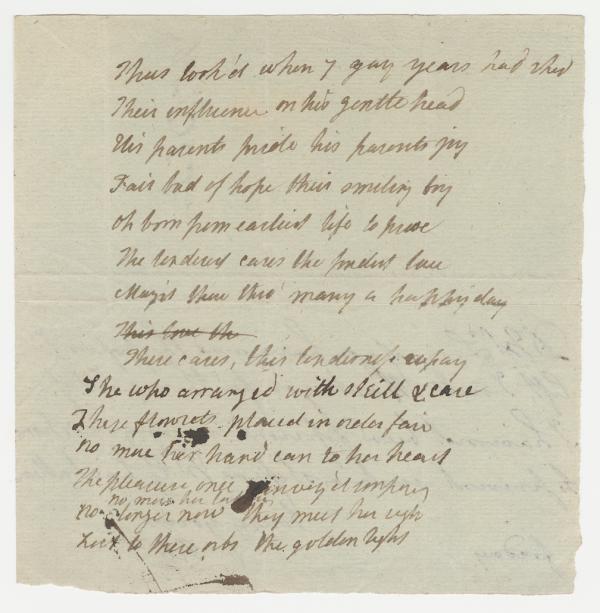 Thus look'd when 7 gay years had shed
Their influence on his gentle head
His parents pride his parents joy
Fair bud of hope their smiling boy
Oh born from earliest life to prove
The tenderest cares the fondest love
Mayst thou thro' many a happy day
This love th
These cares, this tenderness repay
She who arranged with skill & care
These flowrets placed in order fair
no more her hand can to her heart
The pleasure once convey'd impart
no more her
no longer now they meet her sight
Lost to these orbs the golden light